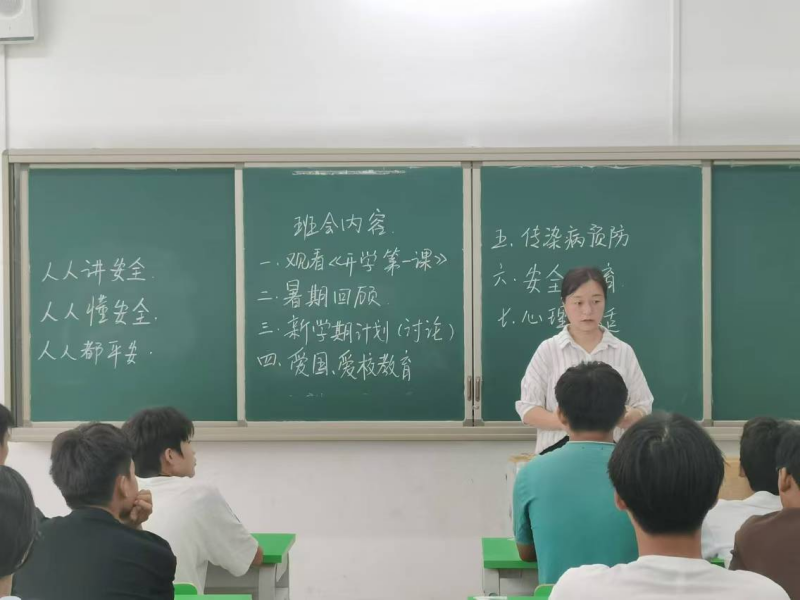 人人讲安全.
人人懂安全.
人人都平安.
班会内容.
一. 观看《开学第一课》
二. 暑期回顾
三. 新学期计划(讨论)
四. 爱国、爱校教育
五. 传染病预防
六. 安全 育
七. 心理